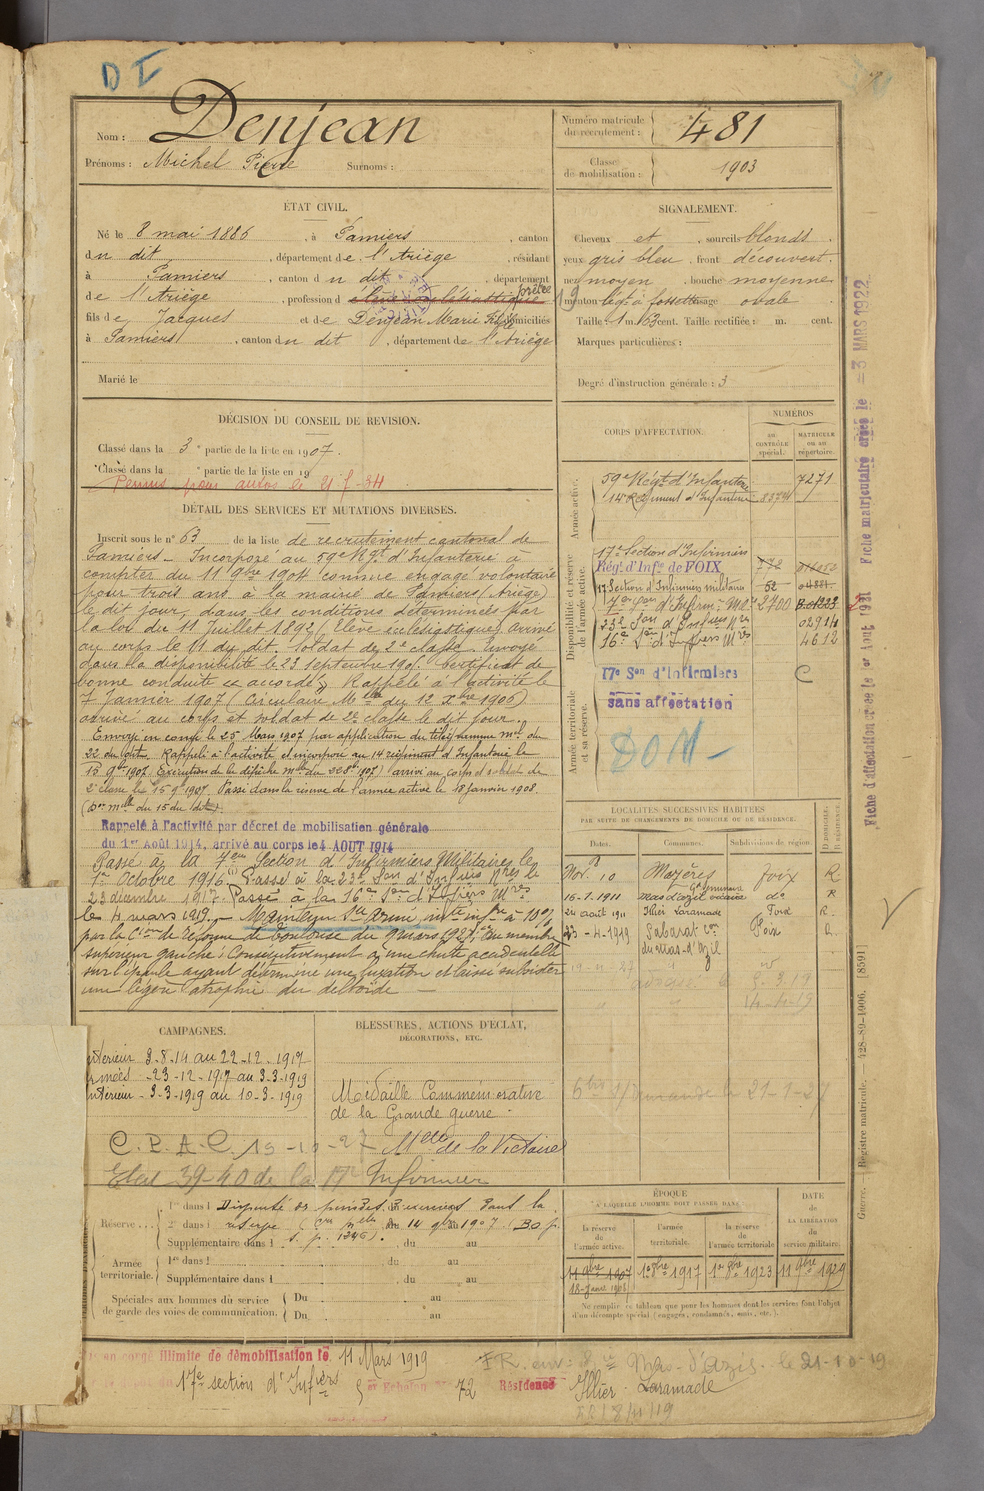 DI
Nom : Denjean
Prénoms : Michel Pierre Surnoms :
Numéro matricule du recrutement : 481
Classe de mobilisation : 1903
ÉTAT CIVIL.
Né le 8 mai 1886, à Pamiers, canton
du dit, département de l'Ariège, résidant
à Pamiers, canton du dit, département
de l'Ariège, profession d'élève ecclésiastique prêtre
fils de Jacques et de Denjean Marie domiciliés
à Pamiers, canton du dit, département de l'Ariège
Marié le
SIGNALEMENT.
Cheveux et sourcils blonds.
yeux gris bleu, front découvert.
nez moyen, bouche moyenne
menton lég. à fossette visage ovale.
Taille : 1 m. 63 cent. Taille rectifiée : m. cent.
Marques particulières :
Degré d'instruction générale : 3
DÉCISION DU CONSEIL DE REVISION.
Classé dans la 3e partie de la liste en 1907.
Classé dans la e partie de la liste en 19
Permis pour autos le 21-7-34
DÉTAIL DES SERVICES ET MUTATIONS DIVERSES.
Inscrit sous le n° 63 de la liste de recrutement cantonal de
Pamiers. Incorporé au 59e Régt d'Infanterie à
compter du 11 9bre 1904 comme engagé volontaire
pour trois ans à la mairie de Pamiers (Ariège)
le dit jour, dans les conditions déterminées par
la loi du 11 Juillet 1892 (Elève eclésigstique) arrivé
au corps le 11 du dit. Soldat de 2e classe. Envoyé
dans la disponibilité le 23 septembre 1905. Certificat de
bonne conduite accordé. Rappelé à l'activité le
7 Janvier 1907 (Circulaire Mlle du 12 Xbre 1906)
arrivé au corps et soldat de 2e classe le dit jour.
Envoyé en congé le 25 Mars 1907 par application du télégramme mel du
22 du dit. Rappelé à l'activité et incorporé au 14e régiment d'Infanterie le
15 9bre 1907 Exécution de la dépêche melle du 22 8bre 1907) arrivé au corps et soldat de
2e classe le 15 9bre 1907. Passé dans la réserve de l'armée active le 18 janvier 1908.
melle du 15 du dit)
Rappelé à l'activité par décret de mobilisation générale
du 1er Août 1914, arrivé au corps le 4 AOUT 1914
Passé à la 7eme Section d'Infirmiers Militaires le
1er Octobre 1916 Passé à la 23e Son d'Infiers Mres le
23 décembre 1917 Passé à la 16e Son d'Infiers Mres
le 4 mars 1919. Maintenu Sce armé, inté infre à 10%
par la Cion de réforme de Toulouse du 9 mars 1927, au membre
supérieur gauche : Consécutivement à une chute accidentelle
sur l'épaule ayant déterminé une luxation et laissé subsister
une légère atrophie du deltoïde
CORPS D'AFFECTATION.
NUMÉROS
AU CONTRÔLE spécial.
MATRICULE ou au répertoire.
Armée active.
59e Régt d'Infanterie 7271
14e Régiment d'Infanterie 8874
Disponibilité et réserve de l'armée active.
17e Section d'Infirmiers
Rég. d'Infie de FOIX 772
17 Section d'Infirmiers militaires 52 04881
7eme Son d'Infirm. Mres 2700 B.01223
23e Son d'Infiers Mres 02924
16e Son d'Infiers Mres 4612
Armée territoriale et sa réserve.
17e Son d'Infirmiers C
sans affectation
DOM
LOCALITÉS SUCCESSIVES HABITÉES
PAR SUITE DE CHANGEMENTS DE DOMICILE OU DE RÉSIDENCE.
Dates. Communes. Subdivisions de région. D. DOMICILE. R. RÉSIDENCE.
Nov. 10 Mazères Foix R
15-7-1911 Mas d'azil vicaire do R
20 août 1911 Illier Laramade Foix R.
23-4-1919 Sabarat Foix R.
du Mas-d'Azil
CAMPAGNES.
ntérieur 3-8-14 au 22-12-1917
rmées -23-12-1917 au 3-3-1919
ntérieur - 3-3-1919 au 10-3-1919
C.P.A.C. 13-10-27
BLESSURES, ACTIONS D'ÉCLAT,
DÉCORATIONS, ETC.
Médaille Commémorative
de la Grande guerre.
Mlle de la Victoire
Etat 39-40 de la 17e Infirmier
Réserve... 1re dans l Dispensé de périodes d'exercices dans la
2e dans l réserve du 14 9bre 1907 B.O. p.
Supplémentaire dans l s. p. 1246). , du au
Armée territoriale. 1re dans l du au
Supplémentaire dans l , du au
Spéciales aux hommes du service de garde des voies de communication. Du au
Du au
ÉPOQUE
A LAQUELLE L'HOMME DOIT PASSER DANS :
la réserve de l'armée active. l'armée territoriale. la réserve de l'armée territoriale
DATE DE LA LIBÉRATION du service militaire.
11 9bre 1907 1er 8bre 1917 1er 8bre 1923 11 9bre 1929
18 Janv 1908
Ne remplir ce tableau que pour les hommes dont les services font l'objet
d'un décompte spécial (engagés, condamnés, omis, etc.).
en congé illimité de démobilisation le 11 Mars 1919
17e section d'Infiers Echelon 72 Résidence Illier Laramade
Mas-d'Azil le 21-10-19
Fiche d'affectation créée le 1er Aout 1921 Fiche matriculaire créée le -3 MARS 1922
Guerre. — Registre matricule. — 428-89-1906. [8591]